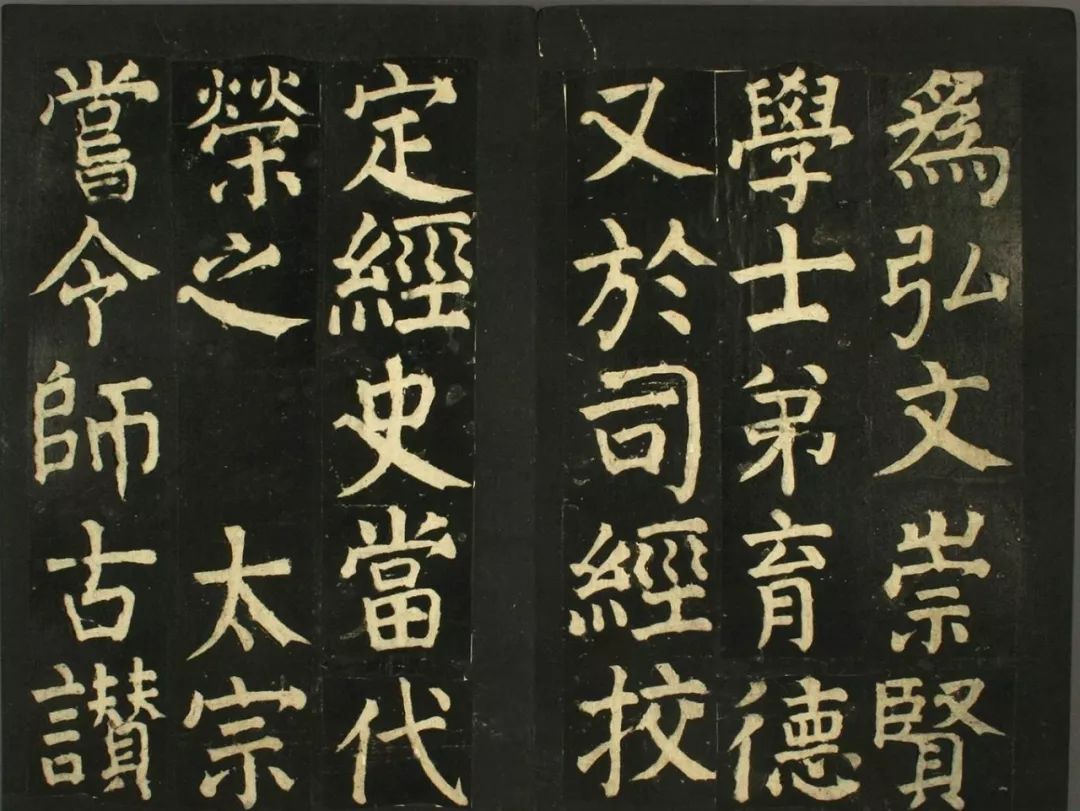 爲弘文崇賢
學士弟育德
又於司經挍
定經史當代
榮之太宗
嘗令師古讃